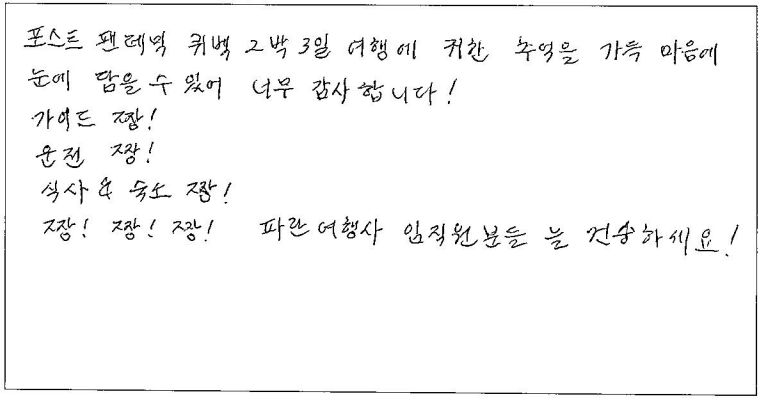 포스트 팬데믹 퀘벡 2박 3일 여행에 귀한 추억을 가득 마음에
눈에 담을 수 있어 너무 감사합니다!
가이드 짱!
운전 짱!
식사 & 숙소 짱!
짱! 짱! 짱! 파란여행사 임직원분들 늘 건승하세요!